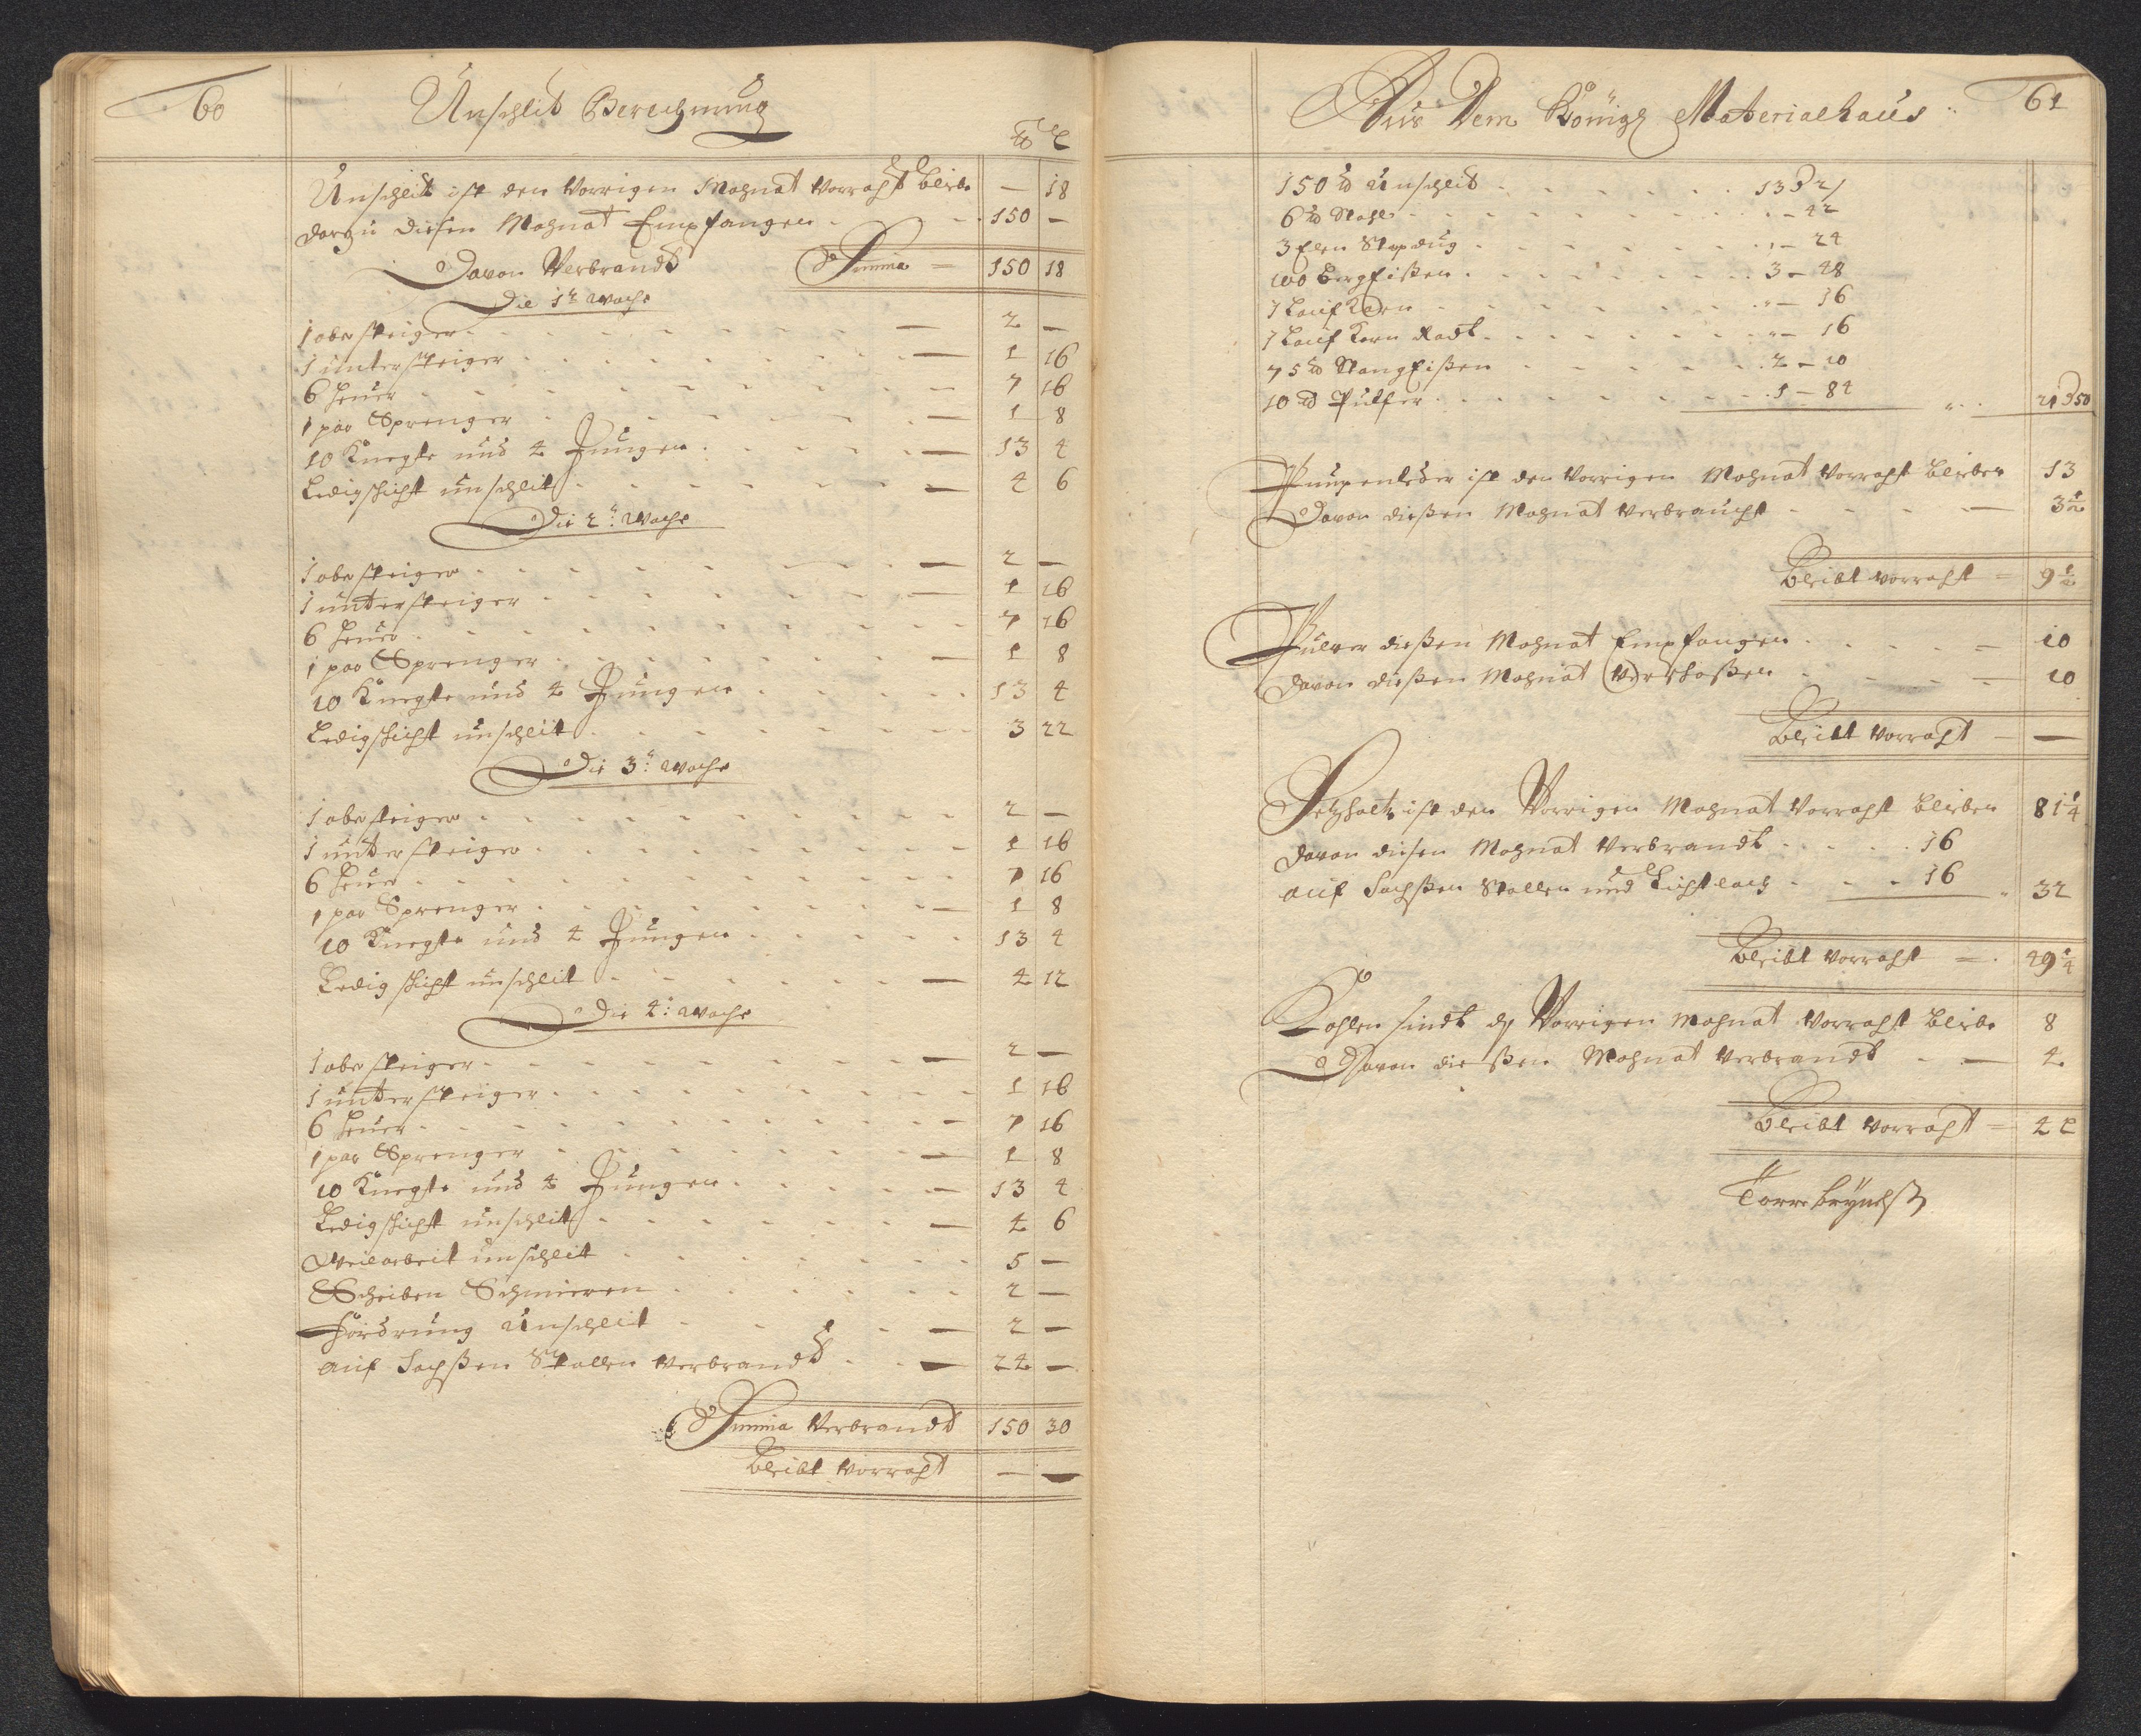 60
Unschlit Berechnung
Unschleit ist den Vorrigen Mohnat Vorraht bleibe — 18
Darzu diesen Mohnat Empfangen 150 —
Davon Verbrandt Summa = 150 18
Die 1te Woche
1 obersteiger 2 —
1 untersteiger 1 16
6 heuer 7 16
1 par Sprenger 1 8
10 Knegte und 4 Jungen 13 4
Ledigschicht unschleit 4 6
Die 2te Woche
1 obersteiger 2 —
1 untersteiger 1 16
6 heuer 7 16
1 par Sprenger 1 8
10 Knegte und 4 Jungen 13 4
Ledigschicht unschleit 3 22
Die 3te Woche
1 obersteiger 2 —
1 untersteiger 1 16
6 heuer 7 16
1 par Sprenger 1 8
10 Knegte und 4 Jungen 13 4
Ledigschicht unschleit 4 12
Die 4te Woche
1 obersteiger 2 —
1 untersteiger 1 16
6 heuer 7 16
1 par Sprenger 1 8
10 Knegte und 4 Jungen 13 4
Ledigschicht unschleit 4 6
Weilarbeit unschleit 5 —
Scheiben Schmieren 2 —
Fördrung Unschleit 2 —
auf Sachßen Stollen verbrandt 24 —
Summa Verbrandt 150 30
Bleibt Vorraht — —
61
Aus Dem Königl Materialhaus
150 ℔ Unschleid 13 27
6 ℔ Stahl — 42
3 Elen — 24
100 bergeißen 3 – 48
1 Lauf Karn — 16
1 Lauf Karn Radt — 16
75 ℔ Stangeißen 2 – 10
10 ℔ Pulfer 1 – 84 21 50
Pumpenleder ist den Vorrigen Mohnat Vorraht bleiben 13
Davon dießen Mohnat verbraucht 3 1/2
Bleibt Vorraht = 9 1/2
Pulver dießen Mohnat Empfangen 10
Davon dießen Mohnat Verschoßen 10
Bleibt Vorraht —
Setzholtz ist den Vorrigen Mohnat Vorraht bleiben 81 1/4
Davon diesen Mohnat Verbrandt 16
auf Sachßen Stollen und 16 32
Bleibt Vorraht = 49 1/4
Kohlen sindt Vorrigen Mohnat Vorraht bleibe 8
Davon dießen Mohnat Verbrandt 4
Bleibt Vorraht = 4